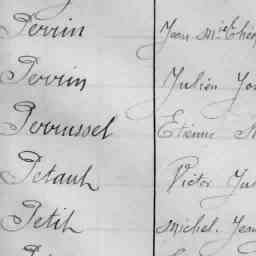 Perrin Jean Mie
Perrin Julien
Perrussel Etienne
Petauh Victor
Petit Michel. Jean